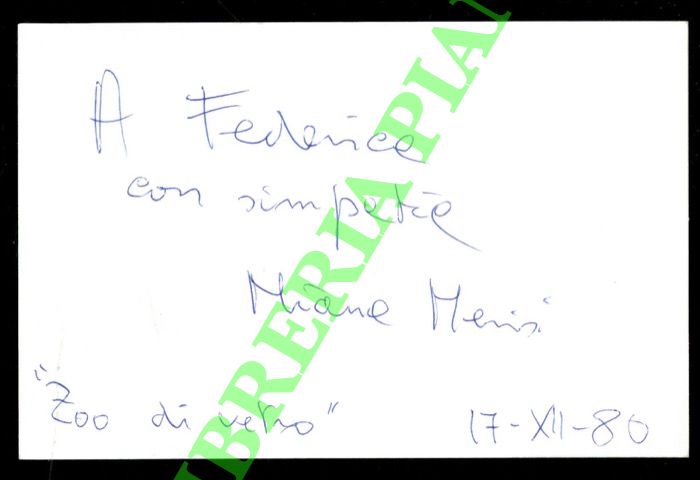 A Federica
con simpatia
Miana Merisi
"Zoo di vetro"
17-XII-80
LIBRERIA PIAN